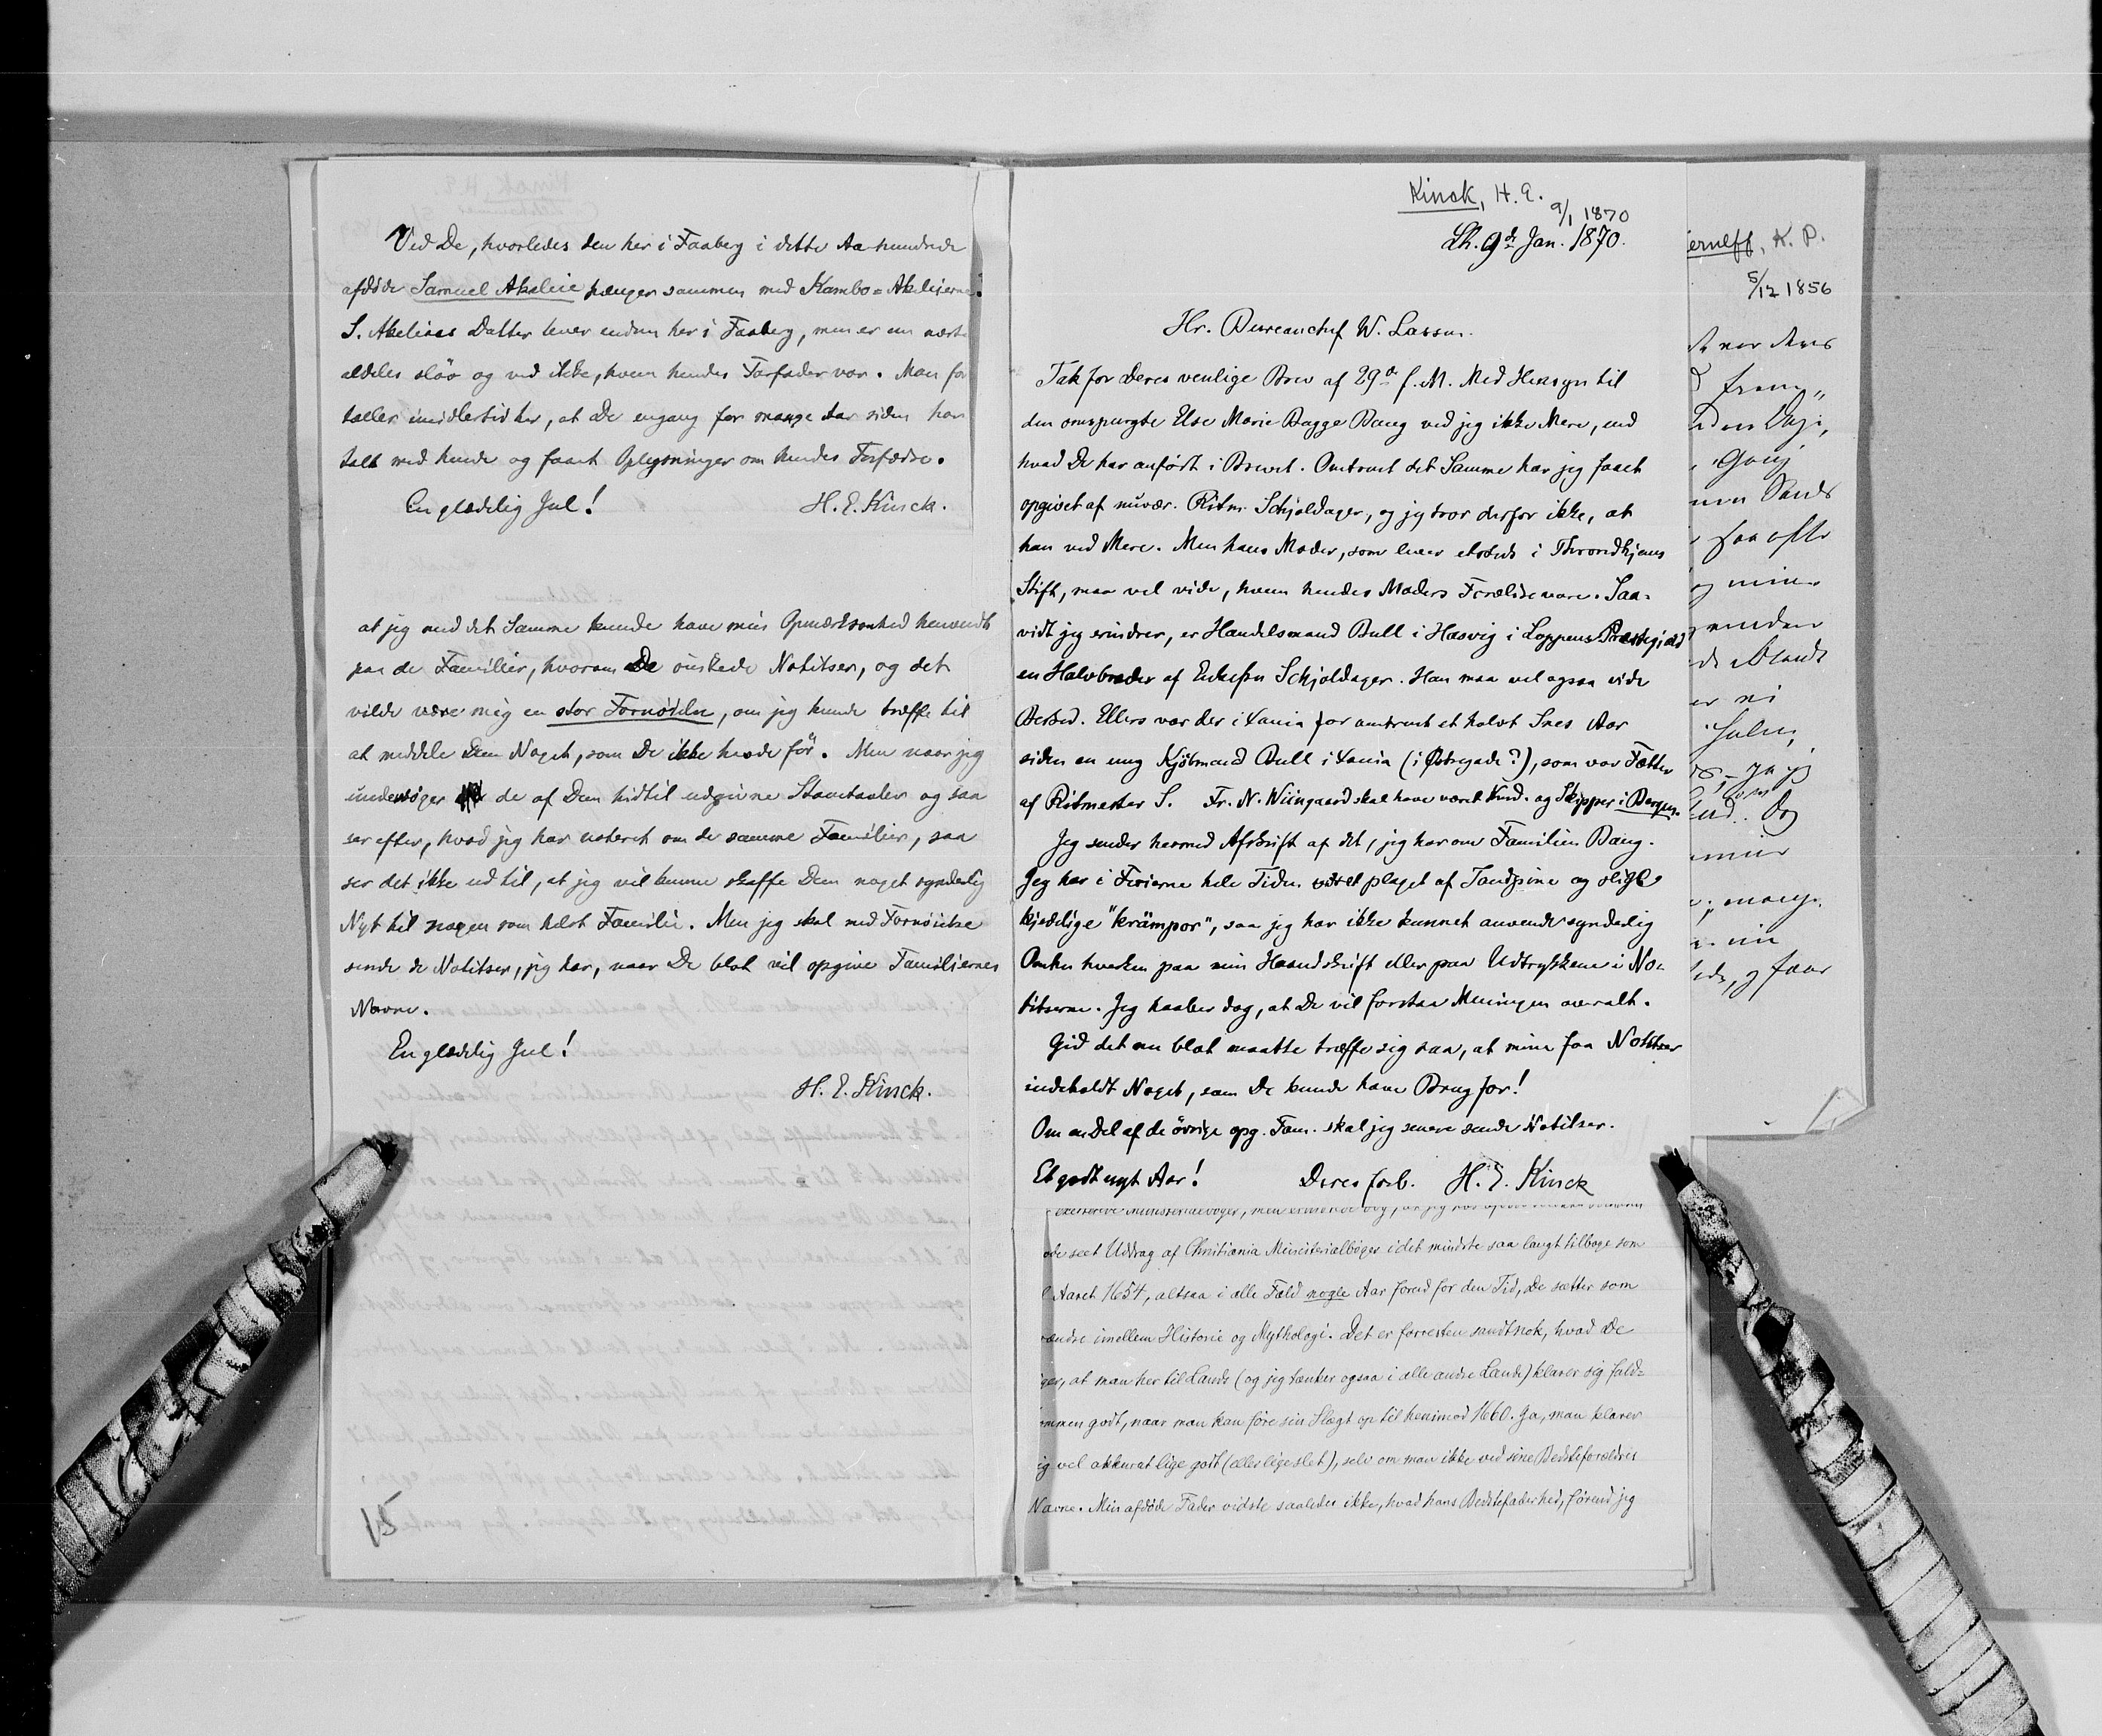 Ved De, hvorledes den her i Faaberg i dette Aarhundrede
afdöde Samuel Akeleie hænger sammen med Kambo-Akeleierne?
S. Akeleies Datter lever endnu her i Faaberg, men er nu næsten
aldeles slöv og ved ikke, hvem hendes Farfader var. Man for
tæller imidlertid her, at De engang for mange Aar siden har
talt med hende og faaet Oplysninger om hendes Forfædre.
En glædelig Jul! H. E. Kinck.
at jeg med det Samme kunde have min Opmærksomhed henvendt
paa de Familier, hvorom De önskede Notitser, og det
vilde være mig en stor Fornöielse, om jeg kunde træffe til
at meddele Dem Noget, som De ikke havde för. Men naar jeg
undersöger de af Dem hidtil udgivne Stamtavler og saa
ser efter, hvad jeg har noteret om de samme Familier, saa
ser det ikke ud til, at jeg vil kunne skaffe Dem noget synderlig
Nyt til nogen som helst Familie. Men jeg skal med Fornöielse
sende de Notitser, jeg har, naar De blot vil opgive Familiernes
Navne.
En glædelig Jul!
H. E. Kinck.
15
Kinck, H. E.
9/1 1870
Lh. 9d Jan. 1870.
Hr. Bureauchef W. Lassen.
Tak for Deres venlige Brev af 29d f. M. Med Hensyn til
den omspurgte Else Marie Bagge Bang ved jeg ikke Mere, end
hvad De har anfört i Brevet. Omtrent det Samme har jeg faaet
opgivet af nuvær. Ritm. Schjoldager, og jeg tror derfor ikke, at
han ved Mere. Men hans Moder, som lever etsteds i Throndhjems
Stift, maa vel vide, hvem hendes Moders Forældre vare. Saa-
vidt jeg erindrer, er Handelsmand Bull i Hasvig i Loppens Præstegjæld
en Halvbroder af Enkefru Schjoldager. Han maa vel ogsaa vide
Besked. Ellers var der i Xania for omtrent et halvt Snes Aar
siden en ung Kjöbmand Bull i Xania (i Østregade?), som var Fætter
af Ritmester S. Fr. N. Wiingaard skal have været Kmd. og Skipper i Bergen.
Jeg sender hermed Afskrift af det, jeg har om Familien Bang.
Jeg har i Ferierne hele Tiden været plaget af Tandpine og slige
kjedelige "krämpor", saa jeg har ikke kunnet anvende synderlig
Omhu hverken paa min Haandskrift eller paa Udtrykkene i No-
titserne. Jeg haaber dog, at De vil forstaa Meningen overalt.
Gid det nu blot maatte træffe sig saa, at mine faa Notitser
indeholdt Noget, som De kunde have Brug for!
Om en Del af de övrige opg. Fam. skal jeg senere sende Notitser.
Et godt nyt Aar! Deres forb. H. E. Kinck
seet Uddrag af Christiania Ministerialböger i det mindste saa langt tilbage som
Aaret 1654, altsaa i alle Fald nogle Aar forud for den Tid, De sætter som
imellem Historie og Mythologi. Det er forresten sandt nok, hvad De
ger, at man her til Lands (og jeg tænker ogsaa i alle andre Lande) klarer sig fuld-
ommen godt, naar man kan före sin Slægt op til henimod 1660. Ja, man klarer
ig vel akkurat lige godt (eller lige slet), selv om man ikke ved sine Bedsteforældres
Navne. Min afdöde Fader vidste saaledes ikke, hvad hans Bedstefader hed, förend jeg
erneff, K. P.
5/12 1856